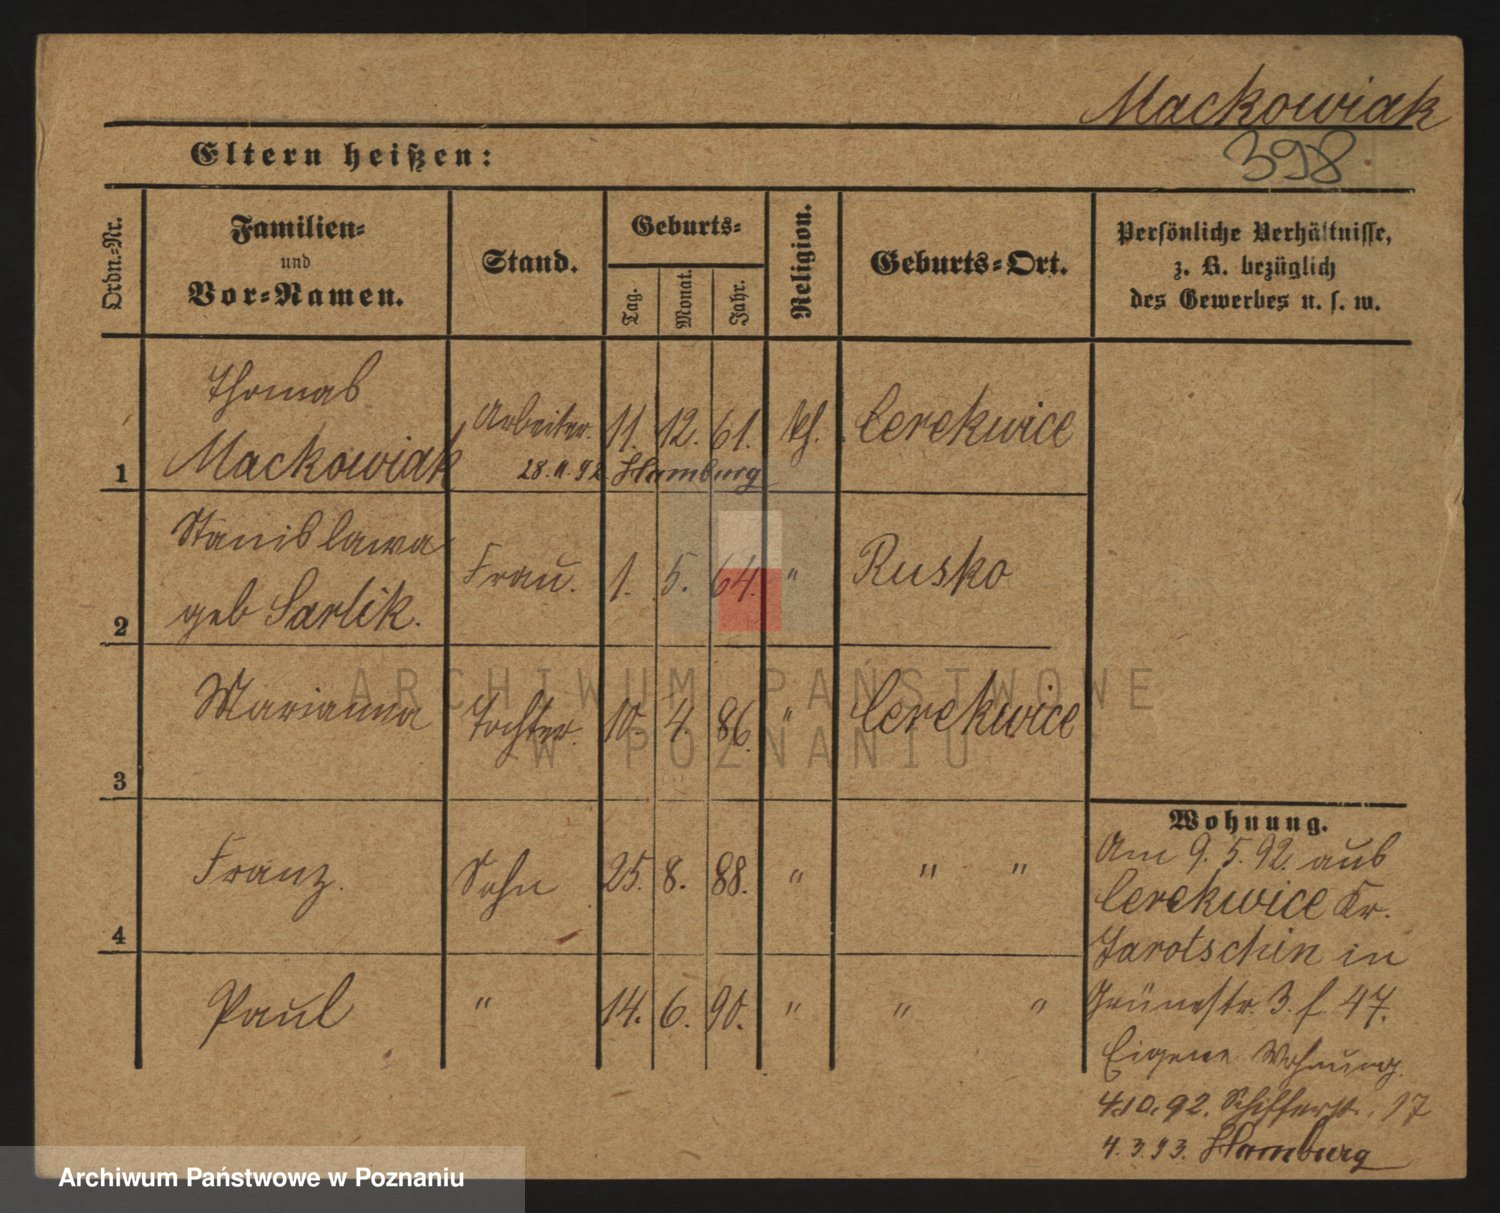 Mackowiak
398
Eltern heißen:
Ordn.-Nr.
Familien-
und
Vor-Namen.
Stand.
Geburts-
Tag.
Monat.
Jahr.
Religion.
Geburts-Ort.
Persönliche Verhältnisse,
z. B. bezüglich
des Gewerbes u. s. w.
1
Thomas
Mackowiak
Arbeiter.
11. 12. 61.
kh.
Cerekwice
28.11.92 Hamburg
2
Stanislawa
geb Sarlik.
Frau.
1. 5. 64.
"
Rusko
3
Marianna
Tochter.
10. 4. 86.
"
Cerekwice
4
Franz.
Sohn
25. 8. 88.
"
" "
Paul
"
14. 6. 90.
"
" "
Wohnung.
Am 9. 5. 92. aus
Cerekwice Kr.
Jarotschin in
Grünestr. 3. f. 47.
Eigene Wohnung.
4.10.92. Schifferstr. 17
4.3.93. Hamburg
ARCHIWUM PAŃSTWOWE
W POZNANIU
Archiwum Państwowe w Poznaniu